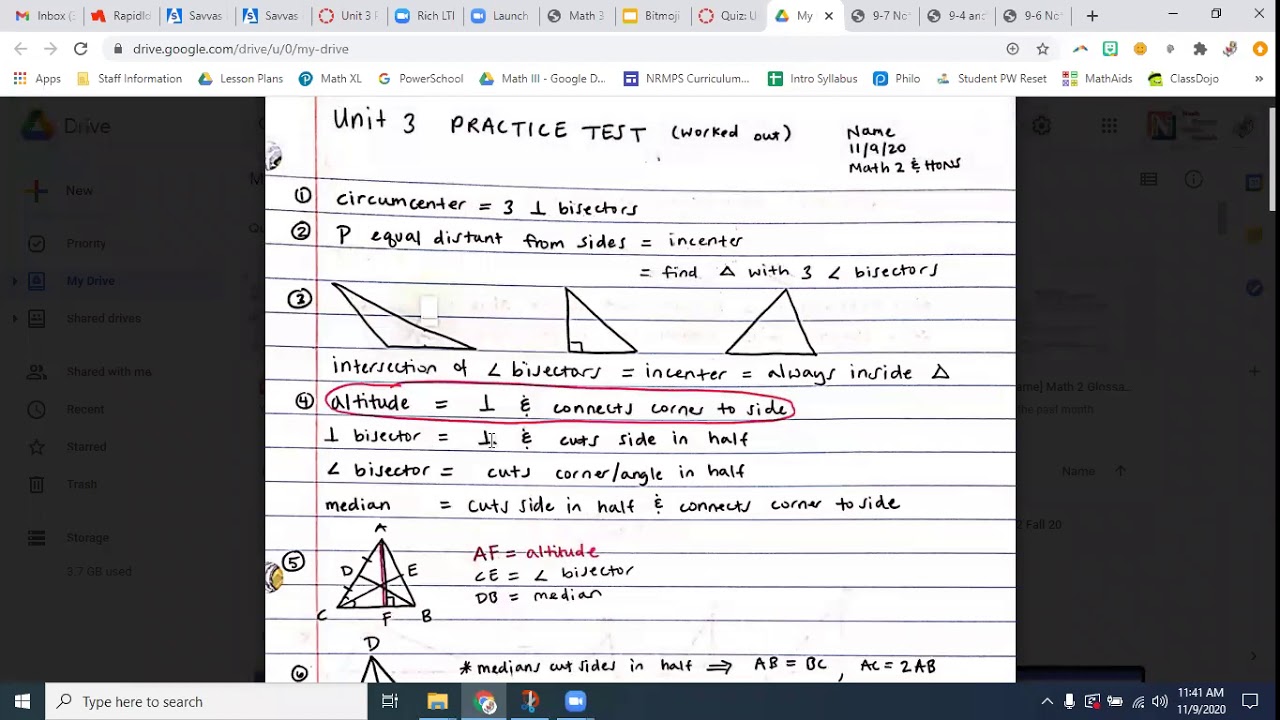 Inbox (3
RapidId
Savvas
Savvas
Unit 3
Rich LTI
Launch
Math 3
Bitmoji
Quiz: U
My
9-7 No
9-4 an
9-6 No
drive.google.com/drive/u/0/my-drive
Apps
Staff Information
Lesson Plans
Math XL
PowerSchool
Math III - Google D...
NRMPS Curriculum...
Intro Syllabus
Philo
Student PW Reset
MathAids
ClassDojo
»
Drive
New
Priority
My Drive
Shared drives
Shared with me
Recent
Starred
Trash
Storage
3.7 GB used
Unit 3 PRACTICE TEST (worked out)
Name
11/9/20
Math 2 & HONS
① circumcenter = 3 ⊥ bisectors
② P equal distant from sides = incenter
= find △ with 3 ∠ bisectors
③
intersection of ∠ bisectors = incenter = always inside △
④ altitude = ⊥ & connects corner to side
⊥ bisector = ⊥ & cuts side in half
∠ bisector = cuts corner/angle in half
median = cuts side in half & connects corner to side
⑤
A
D
E
C
F
B
AF = altitude
CE = ∠ bisector
DB = median
⑥
D
* medians cut sides in half ⇒ AB = BC, AC = 2AB
Math 2 Glossa...
the past month
Name ↑
2 Fall 20
Type here to search
11:41 AM
11/9/2020